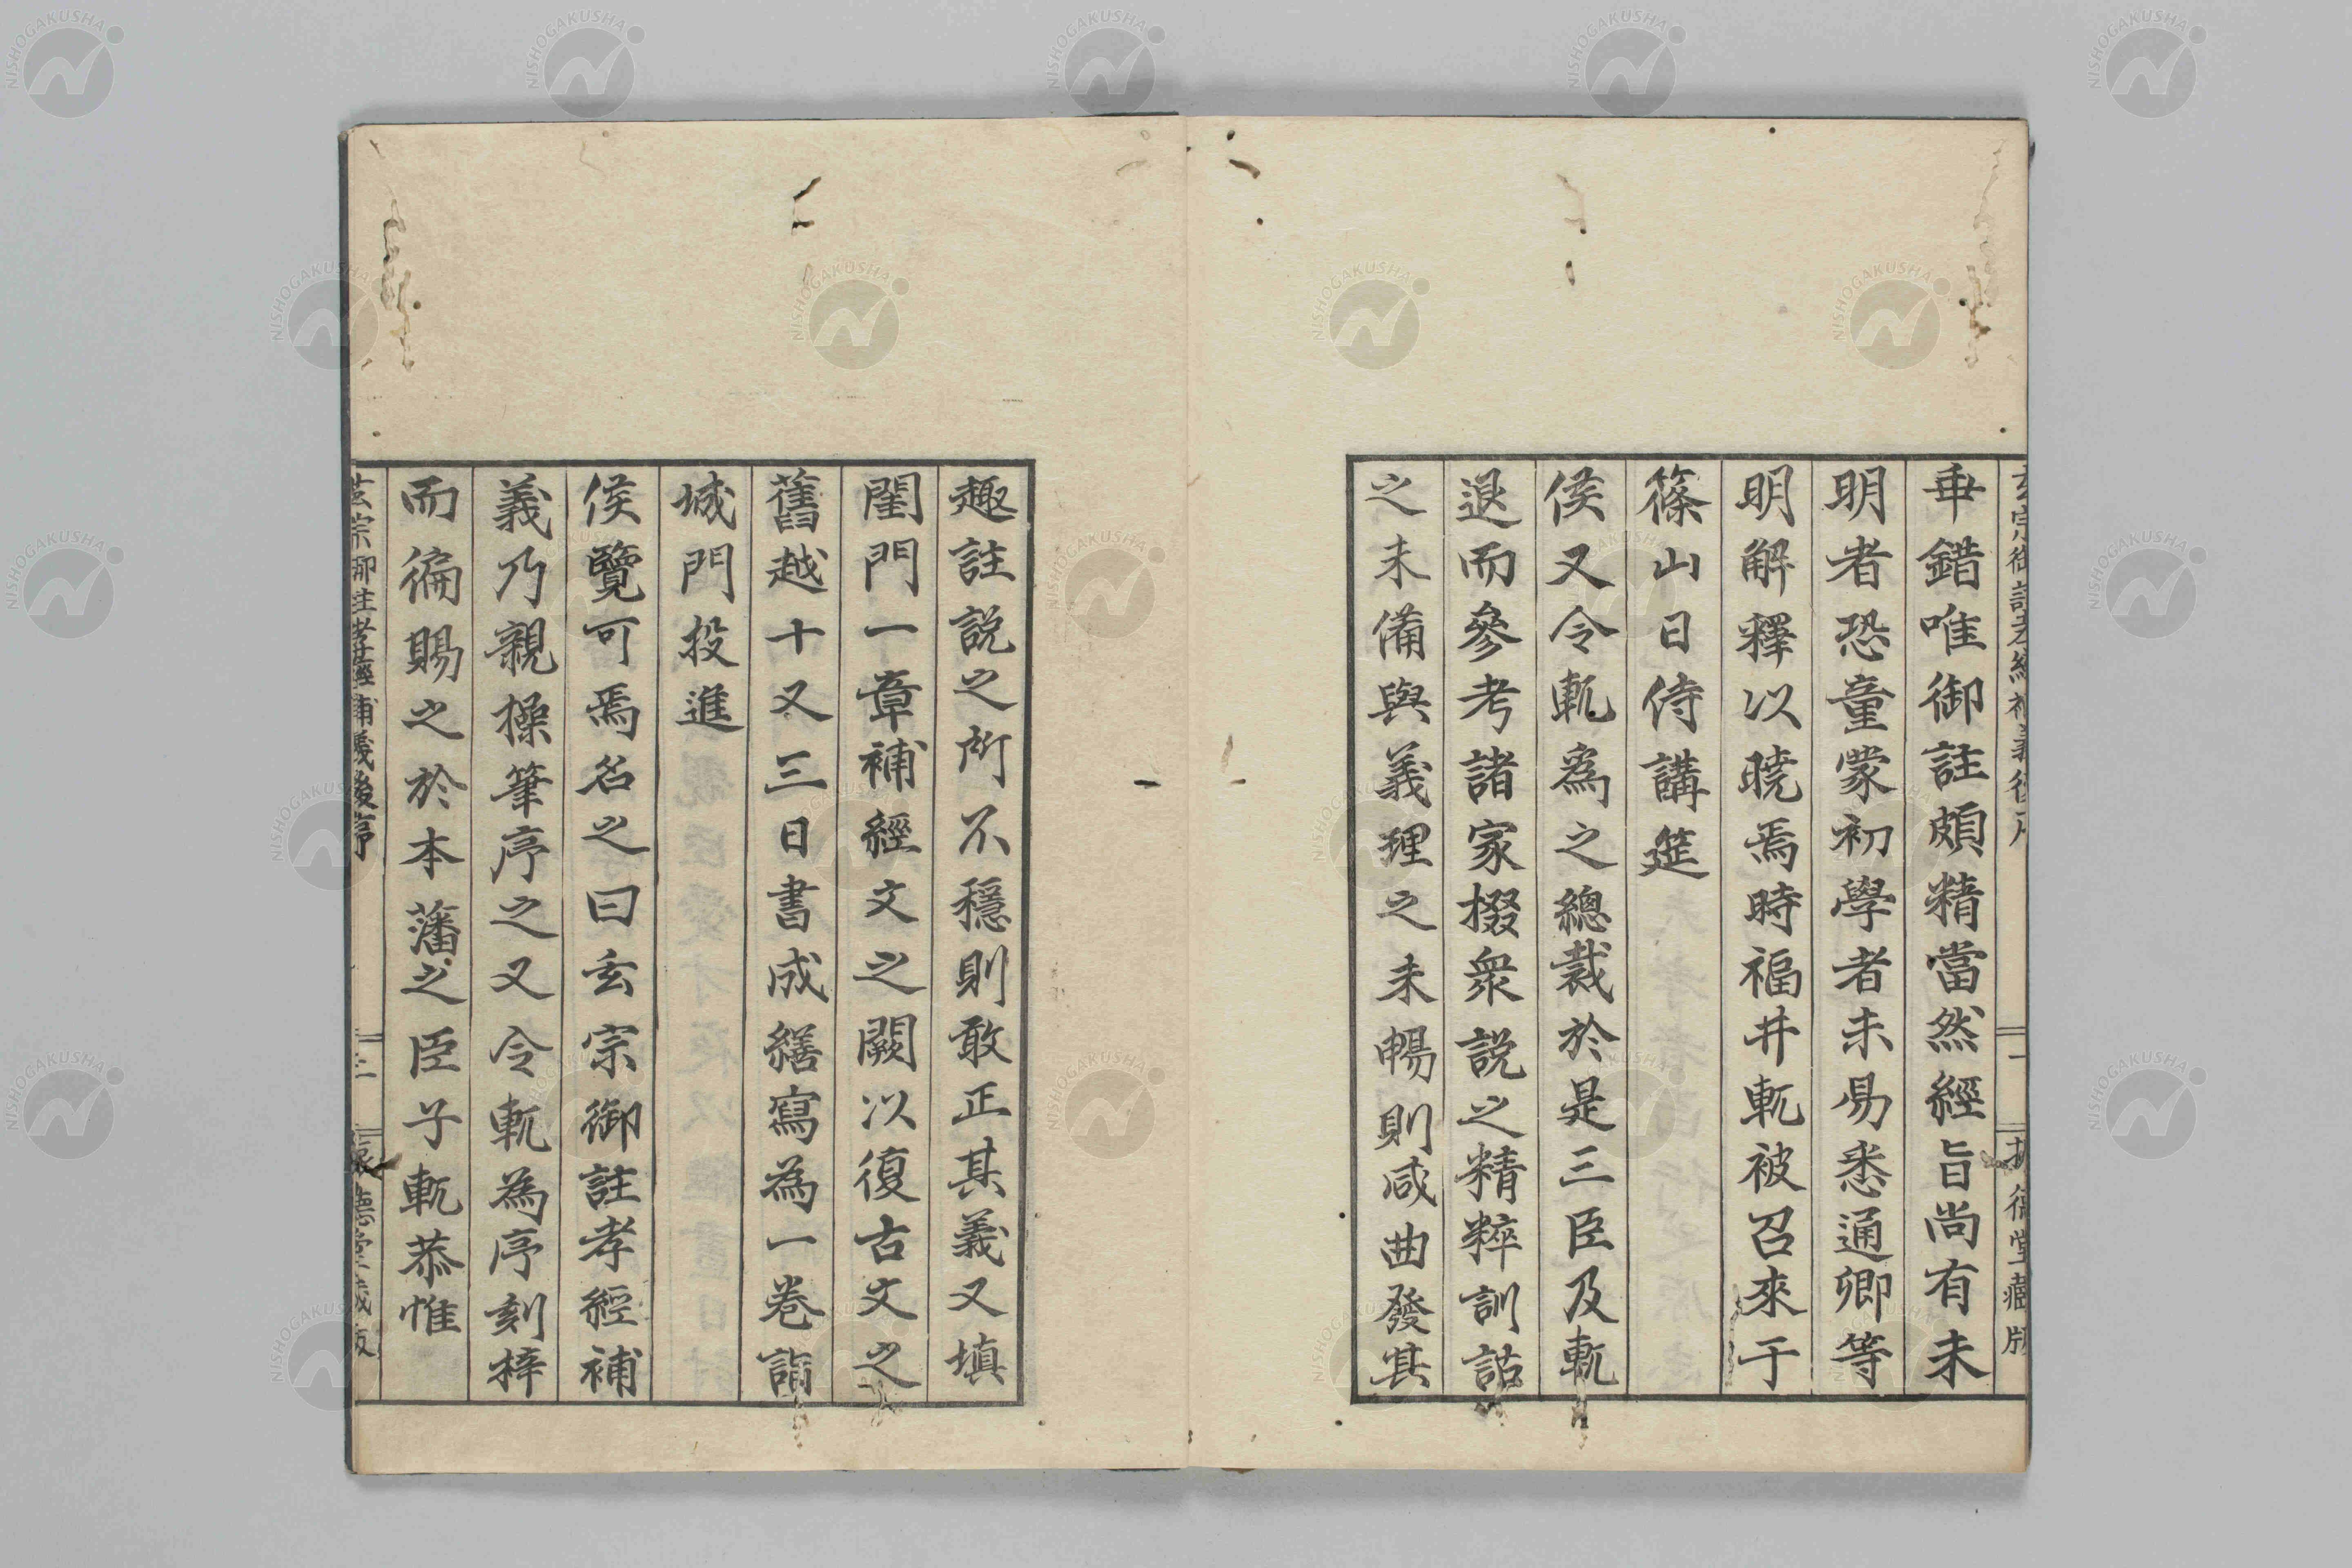 玄宗御註孝經補義後序
垂錯唯御註頗精當然經旨尚有未
明者恐童蒙初學者未易悉通卿等
明解釋以曉焉時福井軏被召來于
篠山日侍講筵
侯又令軏爲之總裁於是三臣及軏
退而參考諸家掇衆説之精粹訓詁
之未備與義理之未暢則咸曲發其
趣註説之所不穩則敢正其義又填
閨門一章補經文之闕以復古文之
舊越十又三日書成繕寫為一卷詣
城門投進
侯覽可焉名之曰玄宗御註孝經補
義乃親操筆序之又令軏為序刻梓
而徧賜之於本藩之臣子軏恭惟
玄宗御註孝經補義後序
三
德堂藏版
NISHOGAKUSHA